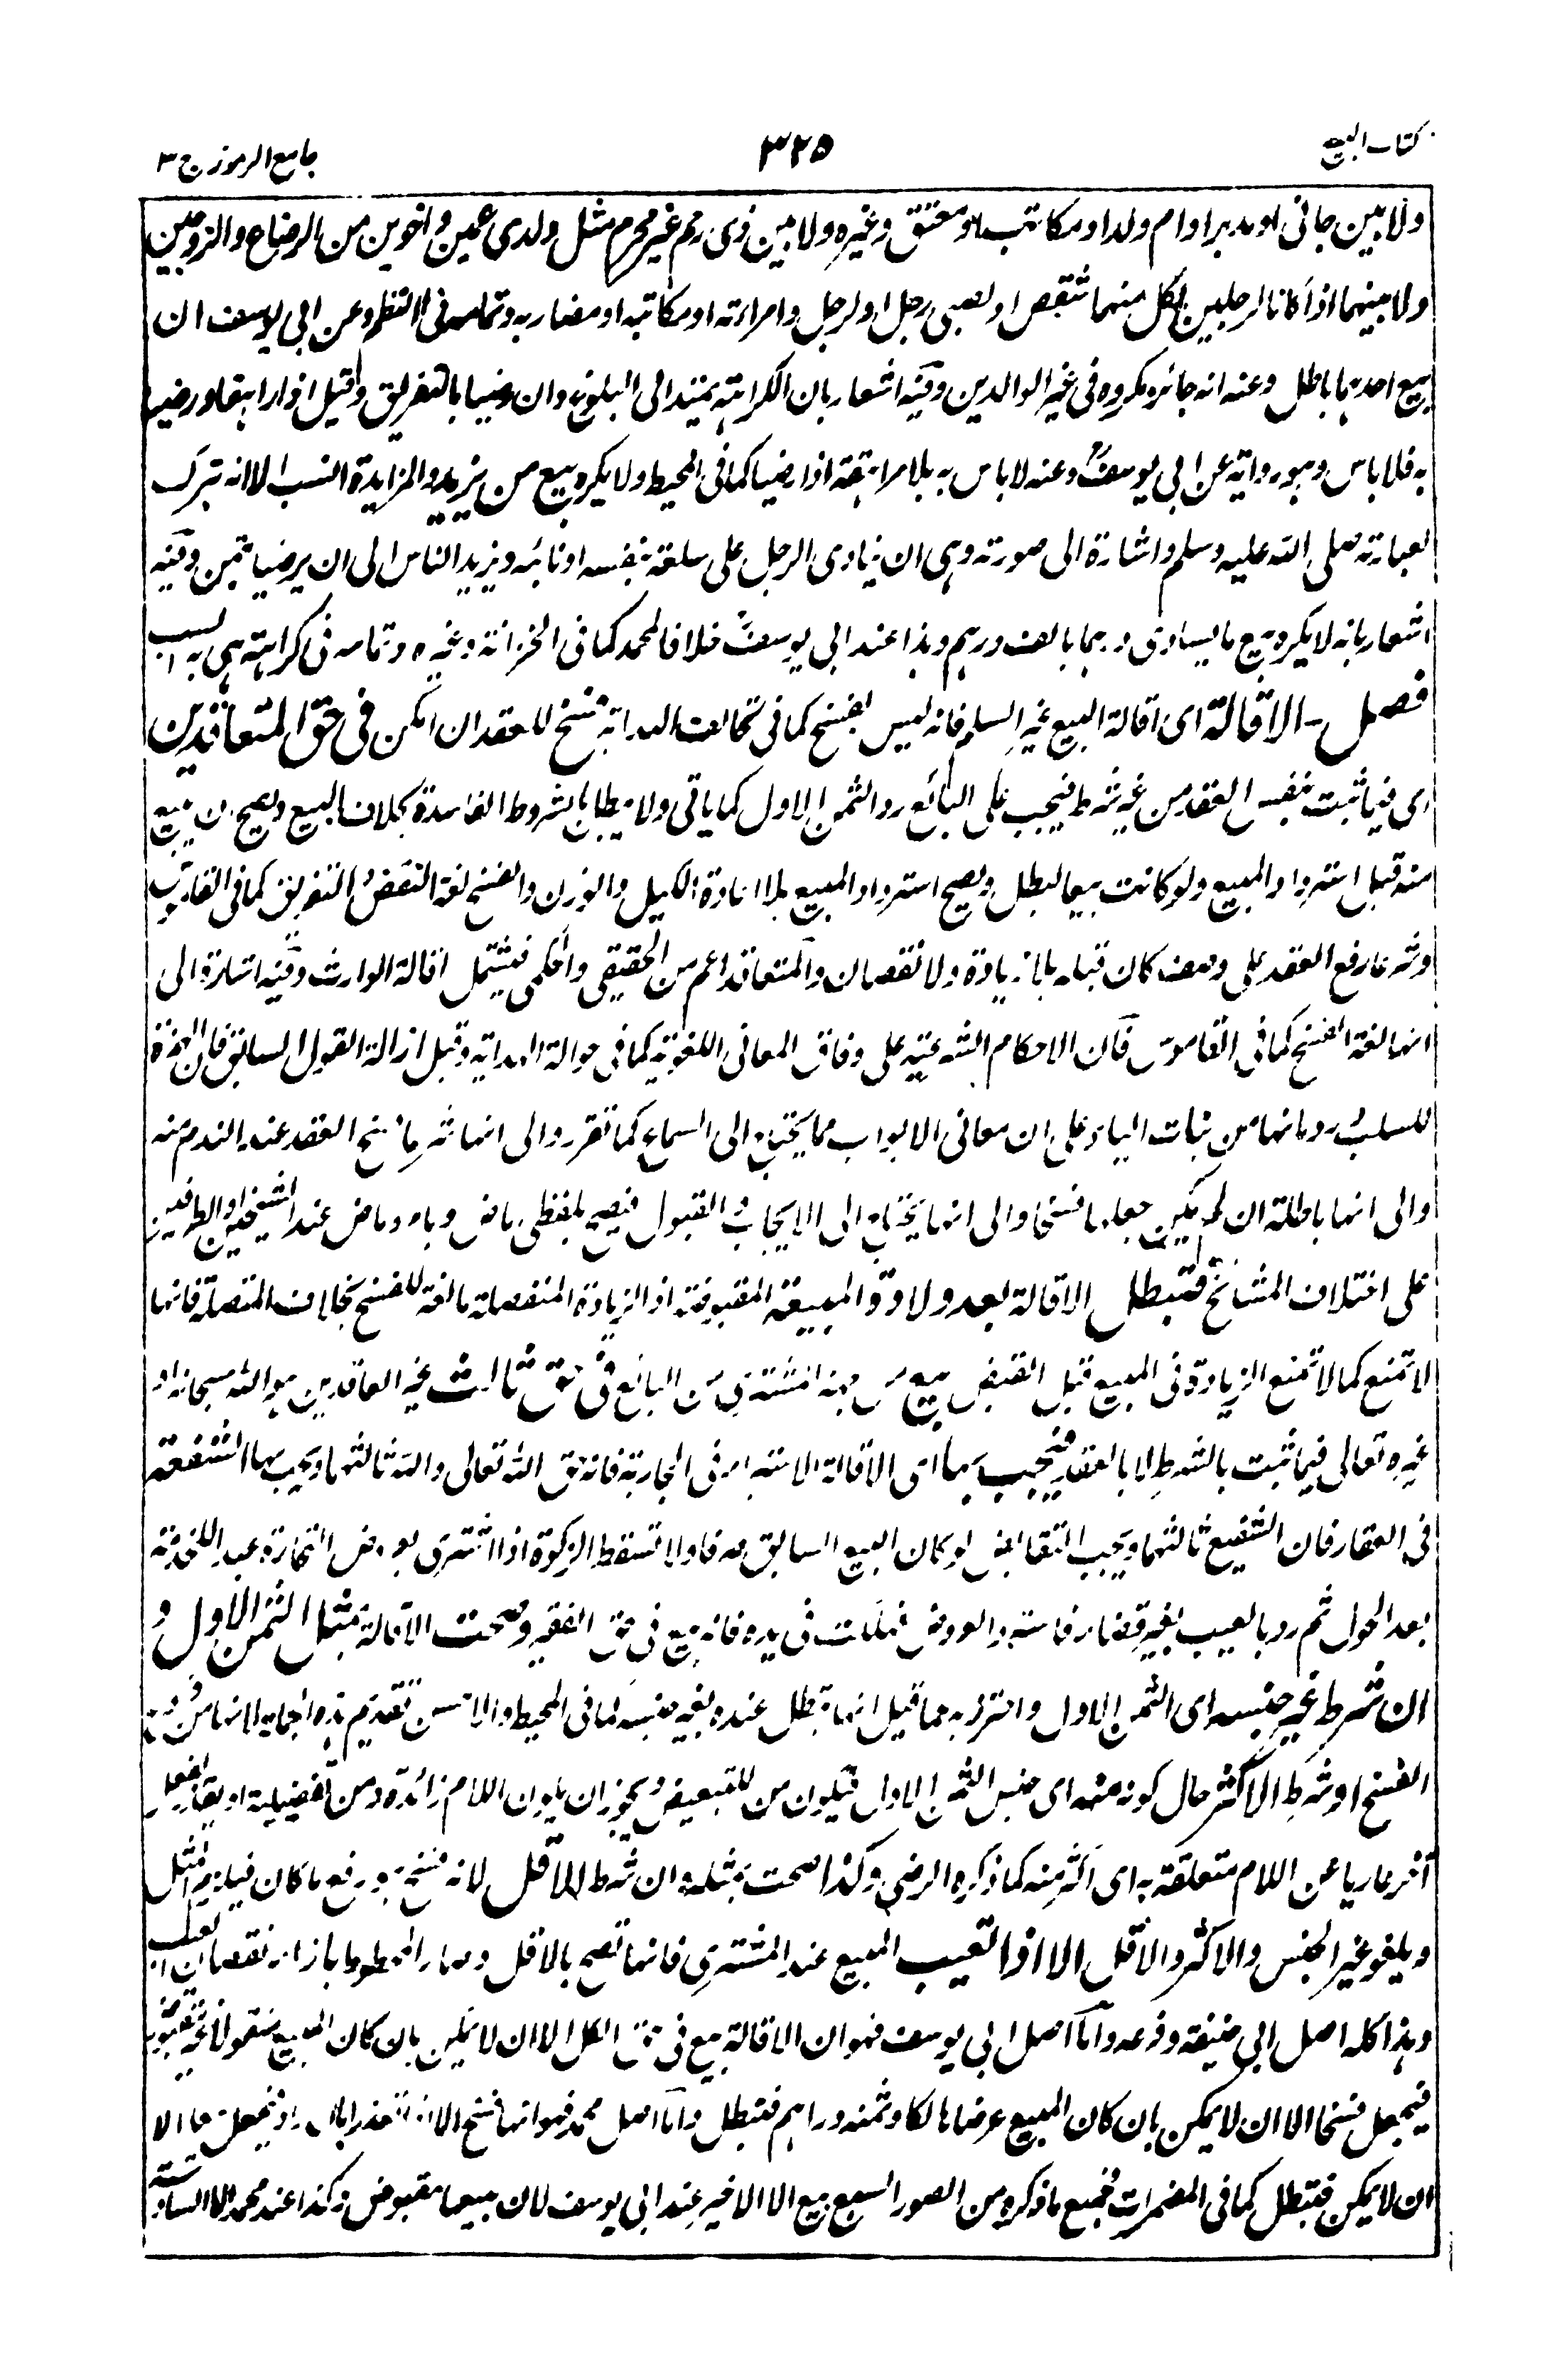 كتاب البيع
٣٢٥
جامع الرموز ج ٣
ولا بين جانى او مدبر او ام ولد او مكاتب او معتق وغيره ولا بين ذى رحم غير محرم مثل ولدى عمين واخوين من الرضاع والزوجين
ولا بينهما اذا كانا لرجلين لكل منهما شقص او لصبى رجل او لرجل وامرأته او مكاتبه او مضاربه وتمامه فى النظم وعن ابى يوسف ان
بيع احدهما باطل وعنه انه جائز مكروه فى غير الوالدين وفيه اشعار بان الكراهة يمتد الى البلوغ وان رضيا بالتفريق وقيل اذا راهقا ورضيا
به فلا باس وهو رواية عن ابى يوسف وعنه لا باس به بلا مراهقة اذا رضيا كما فى المحيط ولا يكره بيع من يزيد والمزايدة انسب الا انه تبرك
بعبارته صلى الله عليه وسلم واشارة الى صورته وهى ان ينادى الرجل على سلعته بنفسه او نائبه ويزيد الناس الى ان يرضيا بثمن وفيه
اشعار بانه لا يكره بيع ما يساوى درهما بالف درهم وهذا عند ابى يوسف خلافا لمحمد كما فى الخزانة وغيره وتمامه فى كراهته هى به انسب
فصل۔ الاقالة اى اقالة البيع غير السلم فانه ليس بفسخ كما فى تحالف الهداية فسخ للعقد ان امكن فى حق المتعاقدين
اى فيما ثبت بنفس العقد من غير شرط فيجب على البائع رد الثمن الاول كما ياتى ولا يبطل بالشروط الفاسدة بخلاف البيع ويصح ان يبيع
منه قبل استرداد المبيع ولو كانت بيعا لبطل ويصح استرداد المبيع بلا اعادة الكيل والوزن والفسخ لغة النقض والتفريق كما فى القاموس
وشرعا رفع العقد على وصف كان قبله بلا زيادة ولا نقصان والمتعاقد اعم من الحقيقى والحكمى فيشتمل اقالة الوارث وفيه اشارة الى
انها لغة الفسخ كما فى القاموس فان الاحكام الشرعية على وفاق المعانى اللغوية كما فى حوالة الهداية وقيل ازالة القول السابق فان الهمزة
للسلب ورد بانها من بنات الياء وعلى ان معانى الابواب مما يحتاج الى السماع كما تقرر والى انها شرعا فسخ العقد عند الندم منه
والى انها باطلة ان لم يمكن جعلها فسخا والى انها يحتاج الى الايجاب والقبول فيصح بلفظى ماض وبامر وماض عند الشيخين او الطرفين
على اختلاف المشائخ فتبطل الاقالة بعد ولادة المبيعة المقبوضة اذ الزيادة المنفصلة مانعة للفسخ بخلاف المتصلة فانها
لا تمنع كما لا تمنع الزيادة فى المبيع قبل القبض بيع من جهة المشترى من البائع فى حق ثالث غير العاقدين هو الله سبحانه او
غيره تعالى فيما ثبت بالشرط لا بالعقد فيجب بها اى الاقالة الاستبراء فى الجارية فانه حق الله تعالى والله ثالثهما ويجب بها الشفعة
فى العقار فان الشفيع ثالثهما ويجب التقابض لو كان البيع السابق صرفا ولا تسقط الزكوة اذا اشترى بعروض التجارة عبد اللخدمة
بعد الحول ثم رد بالعيب بغير قضاء فاسترد العروض فهلكت فى يده فانه بيع فى حق الفقير وصحت الاقالة بمثل الثمن الاول و
ان شرط غير جنسه اى الثمن الاول واحترز به عما قيل انها تبطل عنده بغير جنسه كما فى المحيط والاحسن تقديم هذه الجملة لانها من فروع
الفسخ او شرط الاكثر حال كونه منه اى جنس الثمن الاول فيكون من للتبعيض ويجوز ان يكون اللام زائدة ومن تفضيلية او يقدر افعل
آخر عاريا عن اللام متعلقة به اى اكثر منه كما ذكره الرضى وكذا صحت بمثله ان شرط الاقل لانه فسخ وهو رفع ما كان فيلزم المثل
ويلغو غير الجنس والاكثر والاقل الا اذا تعيب المبيع عند المشترى فانها تصح بالاقل وصار المحطوط بازاء نقصان العيب
وهذا كله اصل ابى حنيفة وفرعه واما اصل ابى يوسف فهو ان الاقالة بيع فى حق الكل الا ان لا يمكن بان كان المبيع منقولا غير مقبوض
فيجعل فسخا الا ان لا يمكن بان كان المبيع عرضا هالكا وثمنه دراهم فتبطل واما اصل محمد فهو انها فسخ الا اذا تعذر فيجعل بيعا الا
ان لا يمكن فتبطل كما فى المضمرات فجميع ما ذكره من الصور السبع بيع الا الاخير عند ابى يوسف لان مبيعها مقبوض وكذا عند محمد الا السادسة